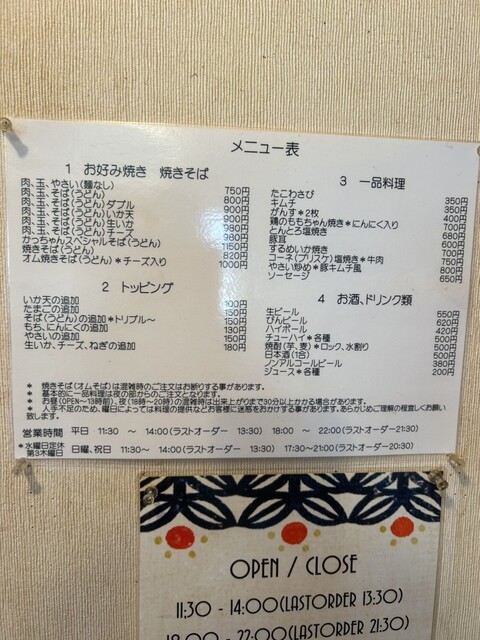 メニュー表
1 お好み焼き 焼きそば
肉、玉、やさい(麺なし) 750円
肉、玉、そば(うどん) 800円
肉、玉、そば(うどん)ダブル 900円
肉、玉、そば(うどん)いか天 900円
肉、玉、そば(うどん)生いか 980円
肉、玉、そば(うどん)チーズ 980円
かっちゃんスペシャルそば(うどん) 1150円
焼きそば(うどん) 820円
オム焼きそば(うどん)*チーズ入り 1000円
2 トッピング
いか天の追加 100円
たまごの追加
そば(うどん)の追加*トリプル~ 150円
もち、にんにくの追加 130円
やさいの追加 150円
生いか、チーズ、ねぎの追加 180円
3 一品料理
たこわさび 350円
キムチ 350円
がんす*2枚 400円
鶏のももちゃん焼き*にんにく入り 700円
とんとろ塩焼き 680円
豚耳 600円
するめいか焼き 700円
コーネ(ブリスケ)塩焼き*牛肉 750円
やさい炒め*豚キムチ風 800円
ソーセージ 650円
4 お酒、ドリンク類
生ビール 550円
びんビール 620円
ハイボール 420円
チューハイ*各種 500円
焼酎(芋、麦)*ロック、水割り 500円
日本酒(1合) 500円
ノンアルコールビール 380円
ジュース*各種 200円
* 焼きそば(オムそば)は混雑時のご注文はお断りする事があります。
* 基本的に一品料理は夜の部からのご注文となります。
* お昼(OPEN~13時前)、夜(18時~20時)の混雑時は出来上がりまで30分以上かかる場合があります。
* 人手不足のため、曜日によっては料理の提供などお客様に迷惑をおかけする事があります。あらかじめご理解の程宜しくお願い
致します。
営業時間 平日 11:30 ~ 14:00(ラストオーダー 13:30) 18:00 ~ 22:00(ラストオーダー21:30)
*水曜日定休
第3木曜日 日曜、祝日 11:30~ 14:00(ラストオーダー 13:30) 17:30~21:00(ラストオーダー20:30)
OPEN / CLOSE
11:30 - 14:00(LASTORDER 13:30)
18:00 - 22:00(LASTORDER 21:30)